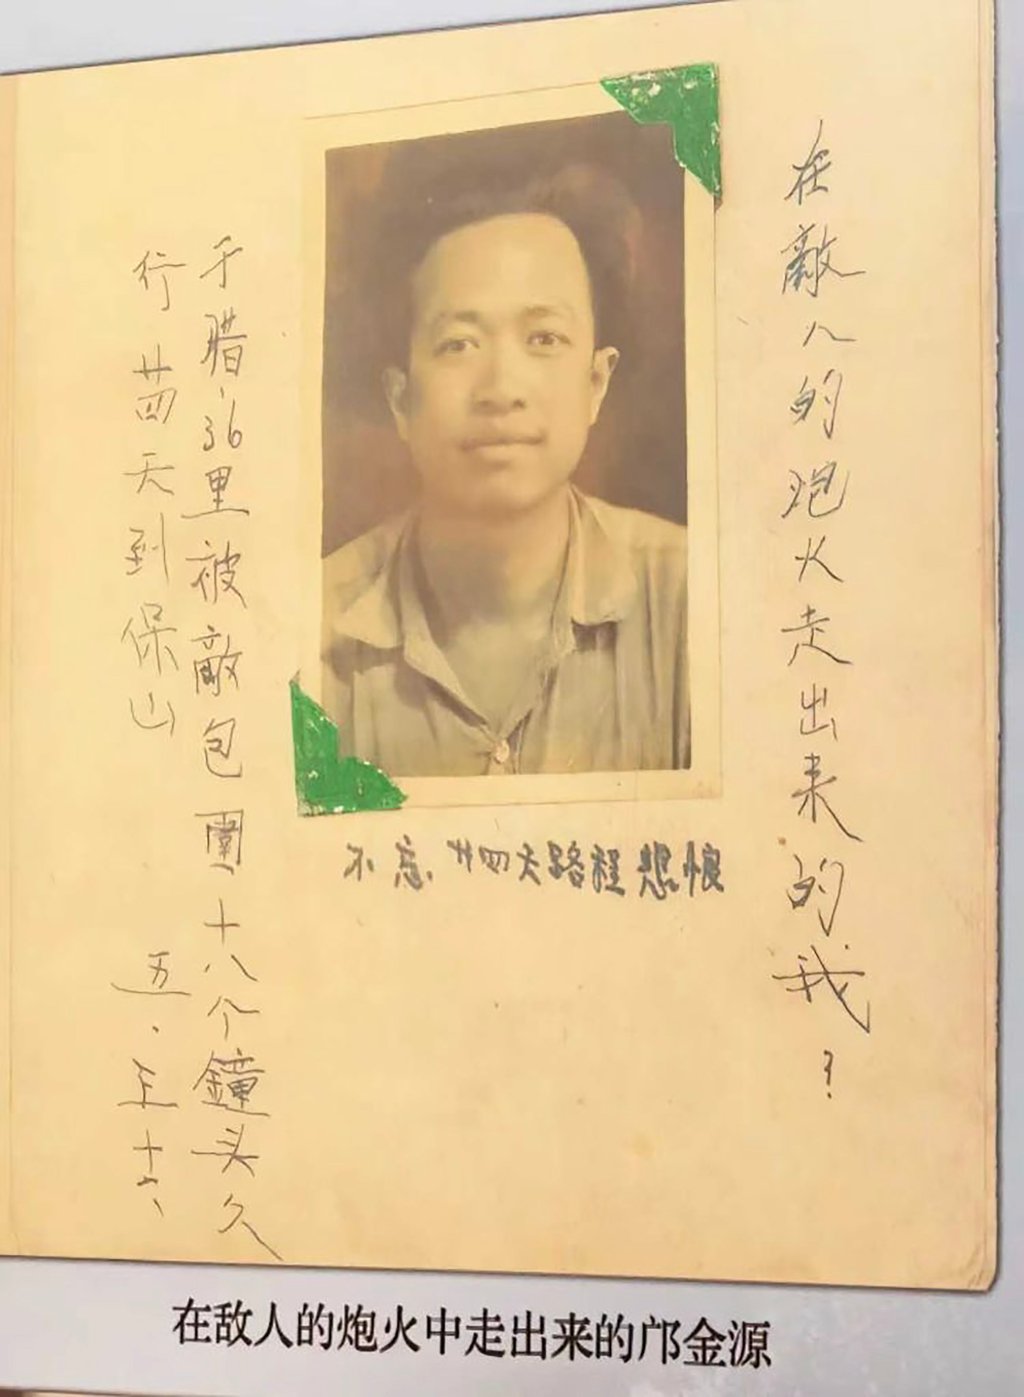 在敵人的炮火走出来的我？
不忘，廿四天路程悲恨
于腊、36里被敵包圍十八个鐘头久
行廿四天到保山
五、十六、
在敌人的炮火中走出来的邝金源